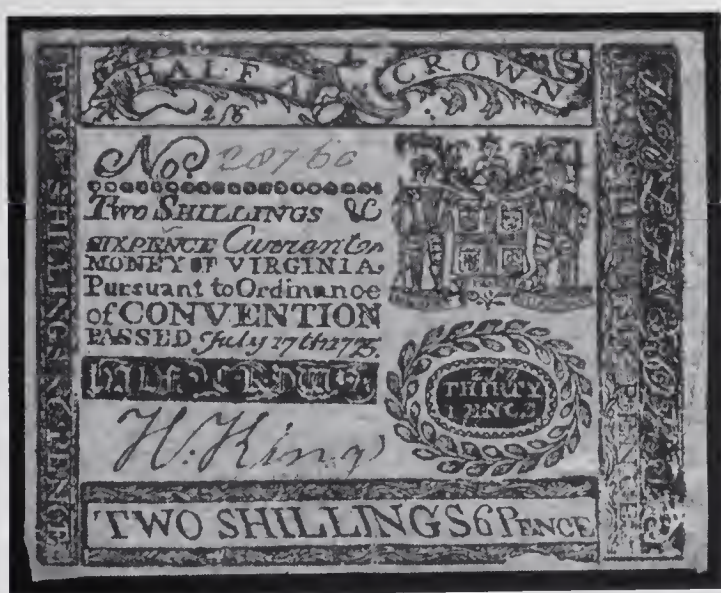 HALF A CROWN
2/6
No. 28760
TWO SHILLINGS &
SIXPENCE Current
MONEY OF VIRGINIA,
Pursuant to Ordinance
of CONVENTION
PASSED July 17th 1775.
HALF A CROWN
H. King
THIRTY
PENCE
TWO SHILLINGS 6 PENCE
TWO SHILLINGS SIXPENCE